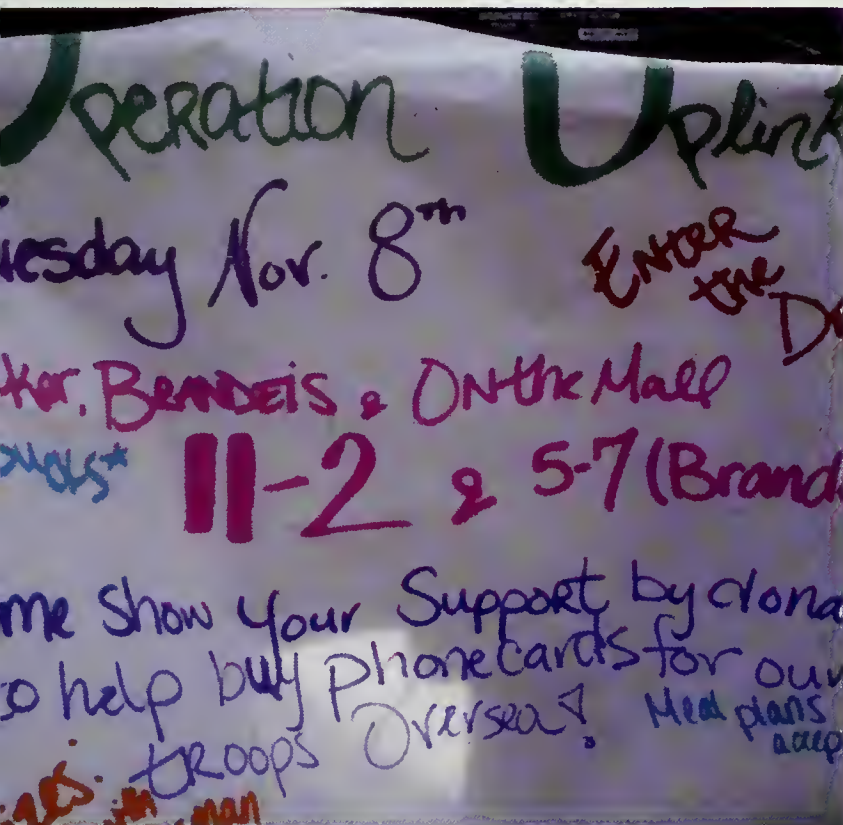 Operation Uplink
uesday Nov. 8th
ENTER
the
ker, BRANDEIS & ON the Mall
11-2 & 5-7 (Brand
me Show your Support by dona
to help buy phone cards for our
troops Oversea!
Meal plans
accep
man